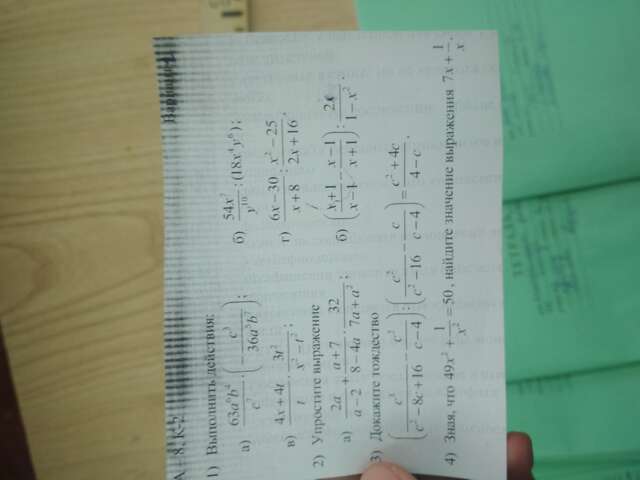 А – 8. К-2. Вариант 1.
1) Выполнить действия:
а) 63a⁶b⁴/c⁷ · (−c³/36a⁵b⁷); б) 54x⁷/y¹⁰ : (18x⁴y⁶);
в) (4x+4t)/t · 3t²/(x²−t²); г) (6x−30)/(x+8) : (x²−25)/(2x+16).
2) Упростите выражение
а) 2a/(a−2) + (a+7)/(8−4a) · 32/(7a+a²); б) ((x+1)/(x−1) − (x−1)/(x+1)) : 2x/(1−x²).
3) Докажите тождество
(c³/(c²−8c+16) − c²/(c−4)) : (c²/(c²−16) − c/(c−4)) = (c²+4c)/(4−c).
4) Зная, что 49x² + 1/x² = 50, найдите значение выражения 7x + 1/x.